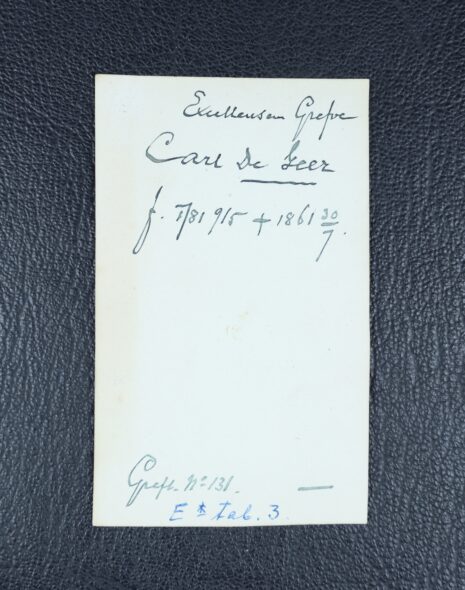 Excellensen Grefve
Carl De Geer
f. 1781 9/5 + 1861 30/7.
Grefl. No 131.
E tab. 3.